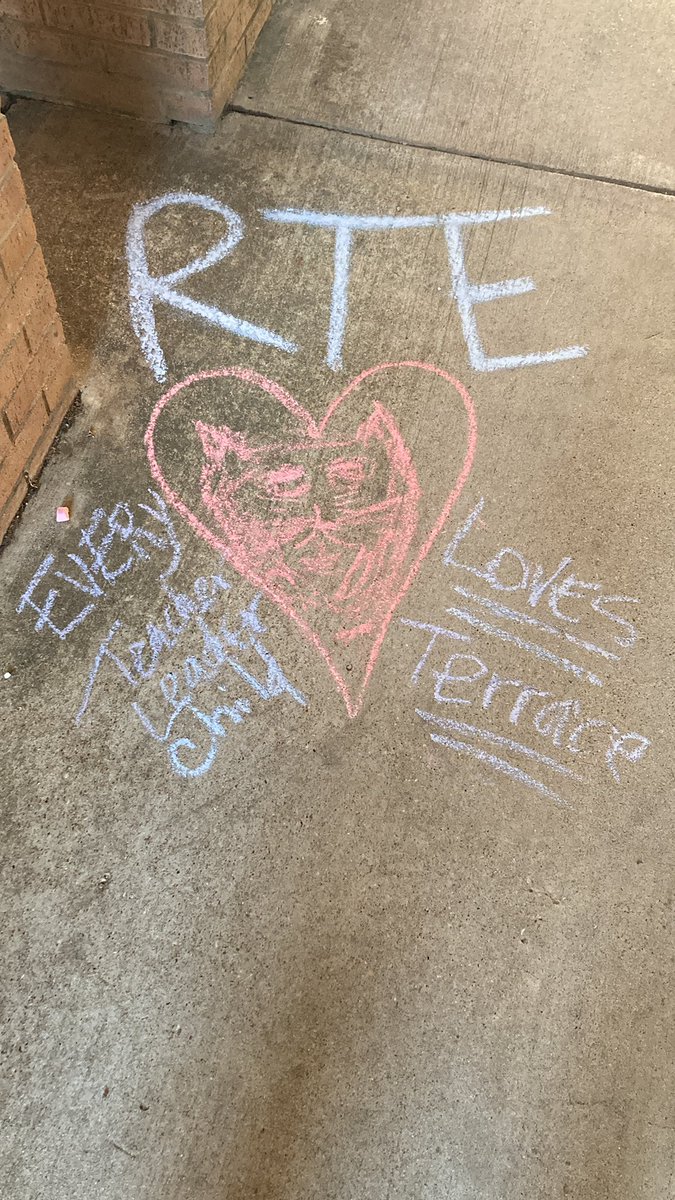 RTE
Every
Teacher
Leader
Child
Loves
Terrace